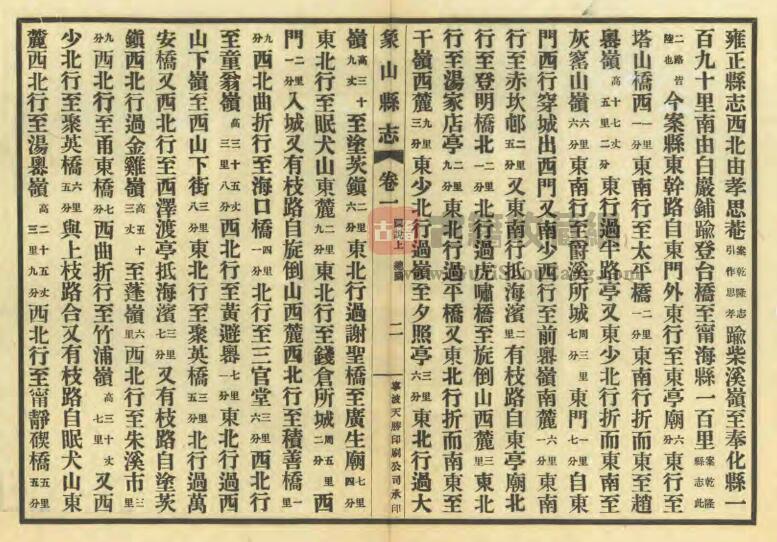 雍正縣志西北由孝思菴案乾隆志引作思孝踰柴溪嶺至奉化縣一
百九十里南由白巖鋪踰登台橋至甯海縣一百里案乾隆縣志此
二路皆陸也今案縣東幹路自東門外東行至東亭廟六分東行至
塔山橋西一分東南行至太平橋二里一分東南行折而東至趙
嶴嶺高十七丈五里二分東行過半路亭又東少北行折而東南至
灰窰山嶺六分東南行至爵溪所城周三里七分東門七分自東
門西行穿城出西門又南少西行至前嶴嶺南麓一里六分東南
行至赤坎邨二里五分又東南行抵海濱二里有枝路自東亭廟北
行至登明橋北二里一分北行過虎嘯橋至旋倒山西麓三里東北
行至湯家店亭二里九分東北行過平橋又東北行折而南東至
干嶺西麓三里九分東少北行過嶺至夕照亭三里六分東北行過大
象山縣志 卷一 圖說上 總圖 二 寧波天勝印刷公司承印
嶺高三十九丈至塗茨鎮二里六分東北行過謝聖橋至廣生廟七里四分
東北行至眠犬山東麓二里九分東北行至錢倉所城周五里二分西
門一里一分入城又有枝路自旋倒山西麓西北行至積善橋一里
九分西北曲折行至海口橋一里四分北行至三官堂三里六分西北行
至童翁嶺高三十五丈三里八分西北行至黃避嶴七里一分東北行過西
山下嶺至西山下街三里八分東北行至聚英橋三里五分北行過萬
安橋又西北行至西澤渡亭抵海濱三里七分又有枝路自塗茨
鎮西北行過金雞嶺高五十三丈至蓬嶺六里西北行至朱溪市三里
九分西北行至甬東橋七分西曲折行至竹浦嶺高三十丈七里又西
少北行至聚英橋六里五分與上枝路合又有枝路自眠犬山東
麓西北行至湯嶴嶺高二十五丈三里九分西北行至甯靜碶橋五里五分